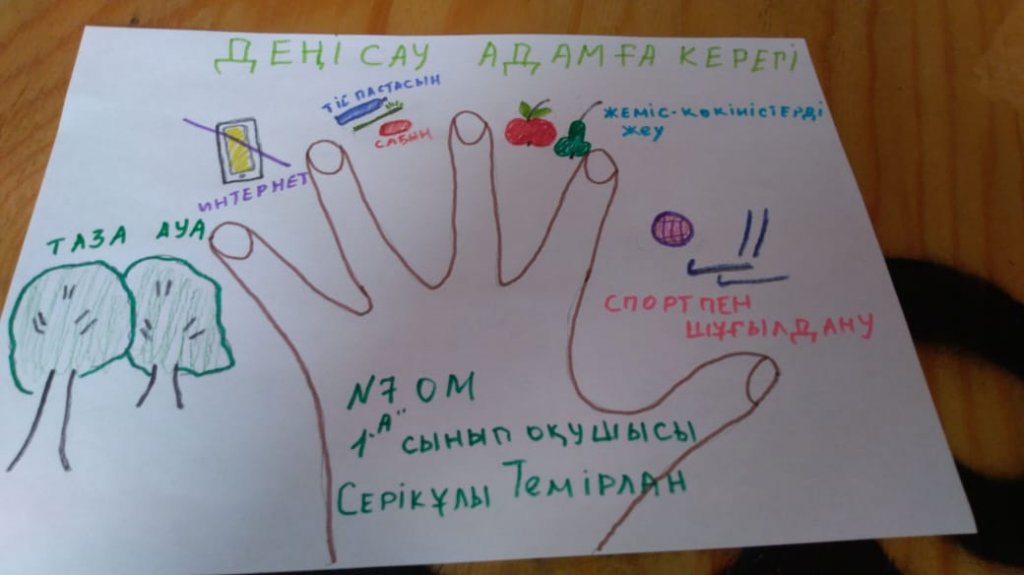 ДЕҢІ САУ АДАМҒА КЕРЕГІ
ТІС ПАСТАСЫН
САБЫН
ЖЕМІС-КӨКІНІСТЕРДІ
ЖЕУ
ИНТЕРНЕТ
ТАЗА АУА
СПОРТПЕН
ШҰҒЫЛДАНУ
N7 ОМ
1-"А" СЫНЫП ОҚУШЫСЫ
СЕРІКҰЛЫ ТЕМІРЛАН